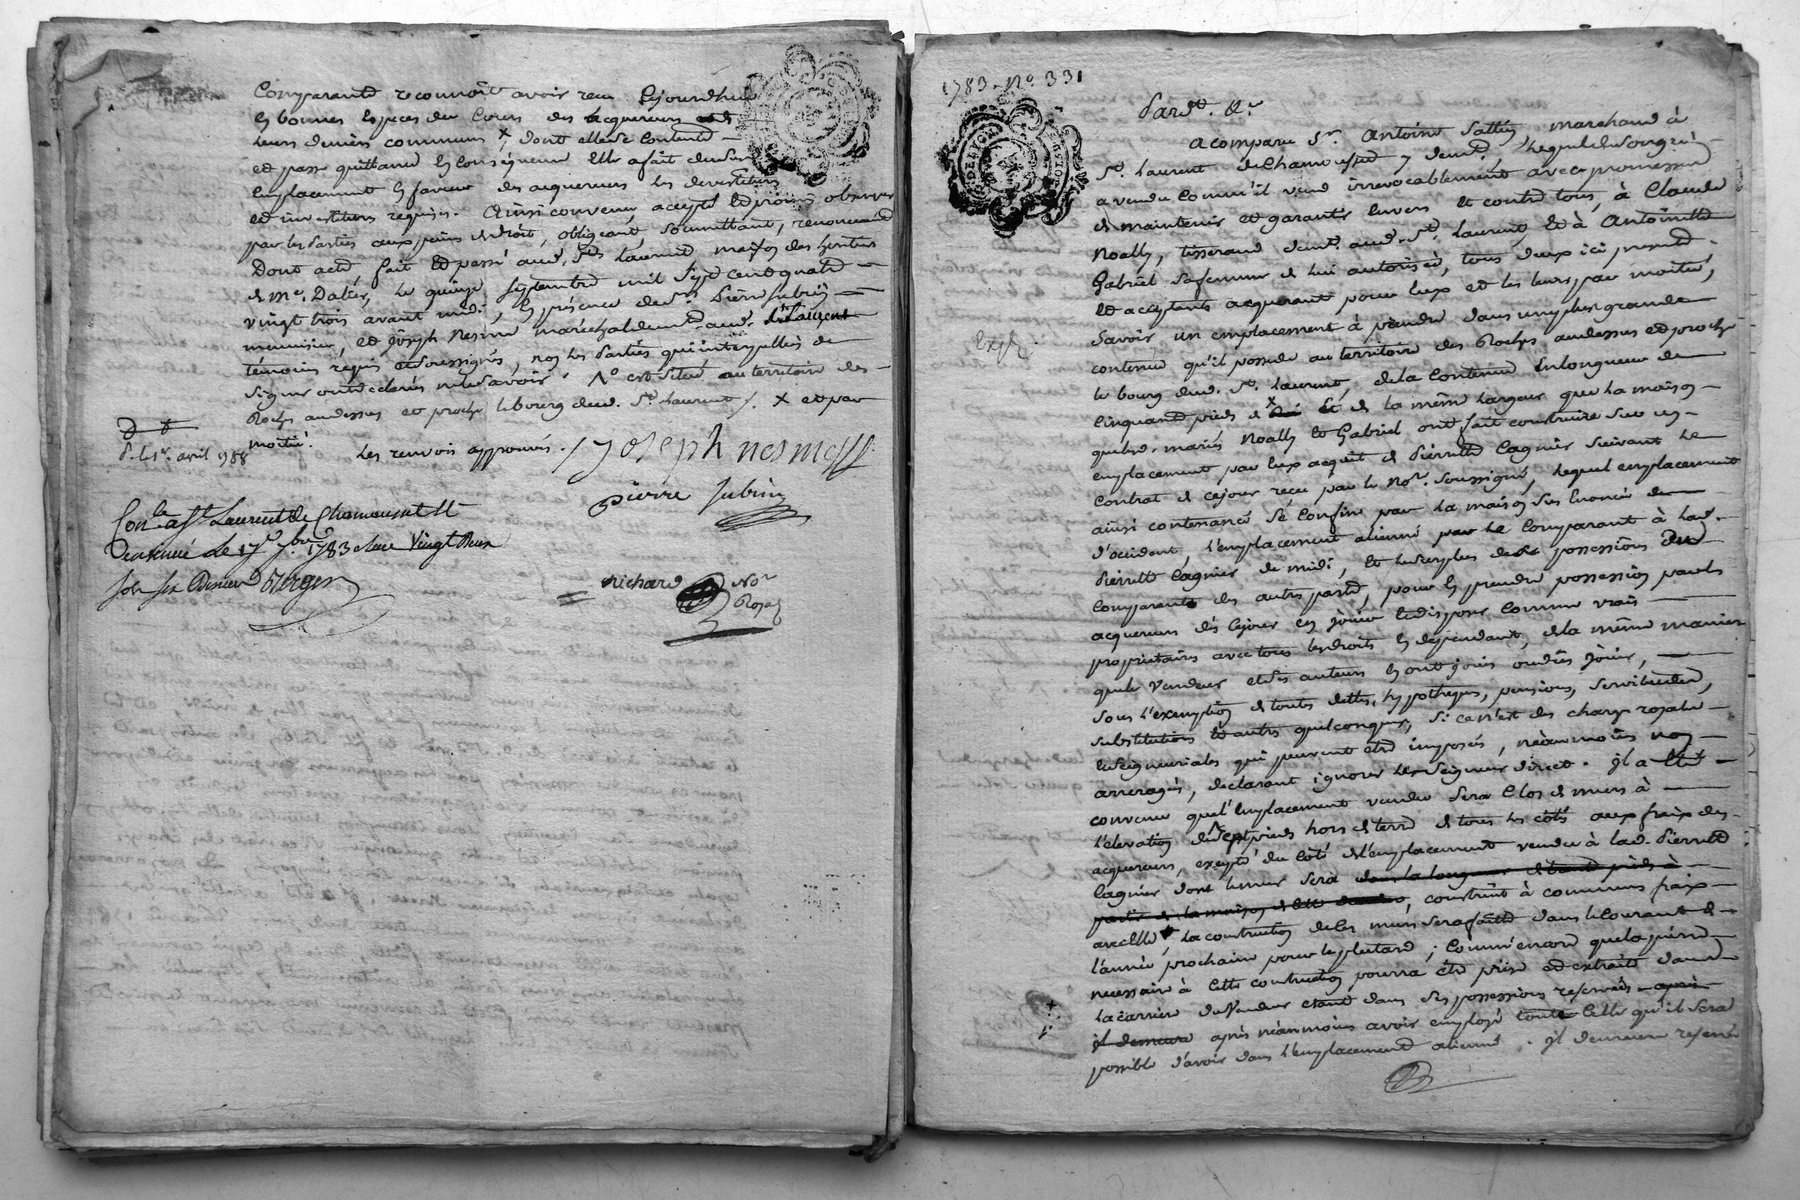 Comparante reconnoît avoir reçu cejourdhui
en bonnes especes du Cours des acquereurs
leurs deniers communs x dont elle se contente
et passe quittance en conséquence elle a fait dud.
emplacement en faveur des acquereurs les devestitures
et investitures requises. Ainsi convenu accepté et promis observer
par les parties aux peines de droit, obligeant, soumettant, renonceant
Dont acte, fait et passé aud. St. Laurent maison des heritiers
de Me. Dalier, le quinze septembre mil sept cent quatre
vingt trois avant midi, en présence de Pierre Jubin
menuisier, et Joseph Nesme maréchal demt. aud. St. Laurent
témoins requis et soussignés, non les parties qui interpellées de
signer ont déclaré ne le savoir. No est situé au territoire des
Roches audessus et proche le bourg dud. St. Laurent /. x et par
moitié. les renvois approuvés.
joseph nesme
D. le 1er. avril 1788
pierre Jubin
Conlé. a St. Laurent de Chamousset
le 17 7bre. 1783 Vingt deux
sols six deniers
richard Nore
Royal
1783 No 331
Pardt. &c
a comparu Sr. Antoine marchand à
St. Laurent de Chamousset y demt. lequel de son gré
a vendu comm'il vend irrévocablement avec promesse
de maintenir et garantir envers et contre tous, à Claude
Noally, tisserand demt. aud. St. Laurent, et à Antoinette
Gabriel sa femme de lui autorisée, tous deux ici presents
et acceptants acquerant pour eux et les leurs par moitié,
Savoir un emplacement à prendre dans un plus grande
contenue qu'il possede au territoire des Roches audessus et proche
le bourg dud. St. Laurent, de la contenue en longueur de
cinquante pieds et de la même largeur que la maison
que led. mariés Noally et Gabriel ont fait construire sur un
emplacement par eux acquit de Pierrette Cagnier suivant le
contrat de cejour reçu par le Nore. soussigné, lequel emplacement
ainsi contenancé se confine par la maison sus énoncée de
d'occident, l'emplacement aliené par le comparant à lad.
Pierrette Cagnier de midi, et le surplus des possessions dud
comparant des autres parts, pour en prendre possession par les
acquereurs dès cejour en jouir et disposer comme vrais
proprietaires avec tous les droits en dependant, de la même maniere
que le vendeur et ses auteurs en ont joui ou dûs jouir,
sous l'exemption de toutes dettes, hypotheques, pensions, servitudes,
substitutions et autres quelconques, si ce n'est des charges royales
et seigneuriales qui peuvent être imposés, néanmoins non
arreragés, declarant ignorer le seigneur direct. il a été
convenu que l'emplacement vendu sera clos de murs à
l'élevation de sept pieds hors de terre de tous les côtés aux fraix des
acquereurs, excepté du côté de l'emplacement vendu à lad. Pierrette
Cagnier dont le mur sera
construit à communs fraix
avec elle, la construction desd. murs sera faite dans le courant de
l'année prochaine pour le plutard; comm'encore que la pierre
necessaire à cette construction pourra être prise et extraite dans
la carriere du vendeur étant dans ses possessions reservées
il demeure après néanmoins avoir employé toute celle qu'il sera
possible d'avoir dans l'emplacement aliené. il demeure reservé